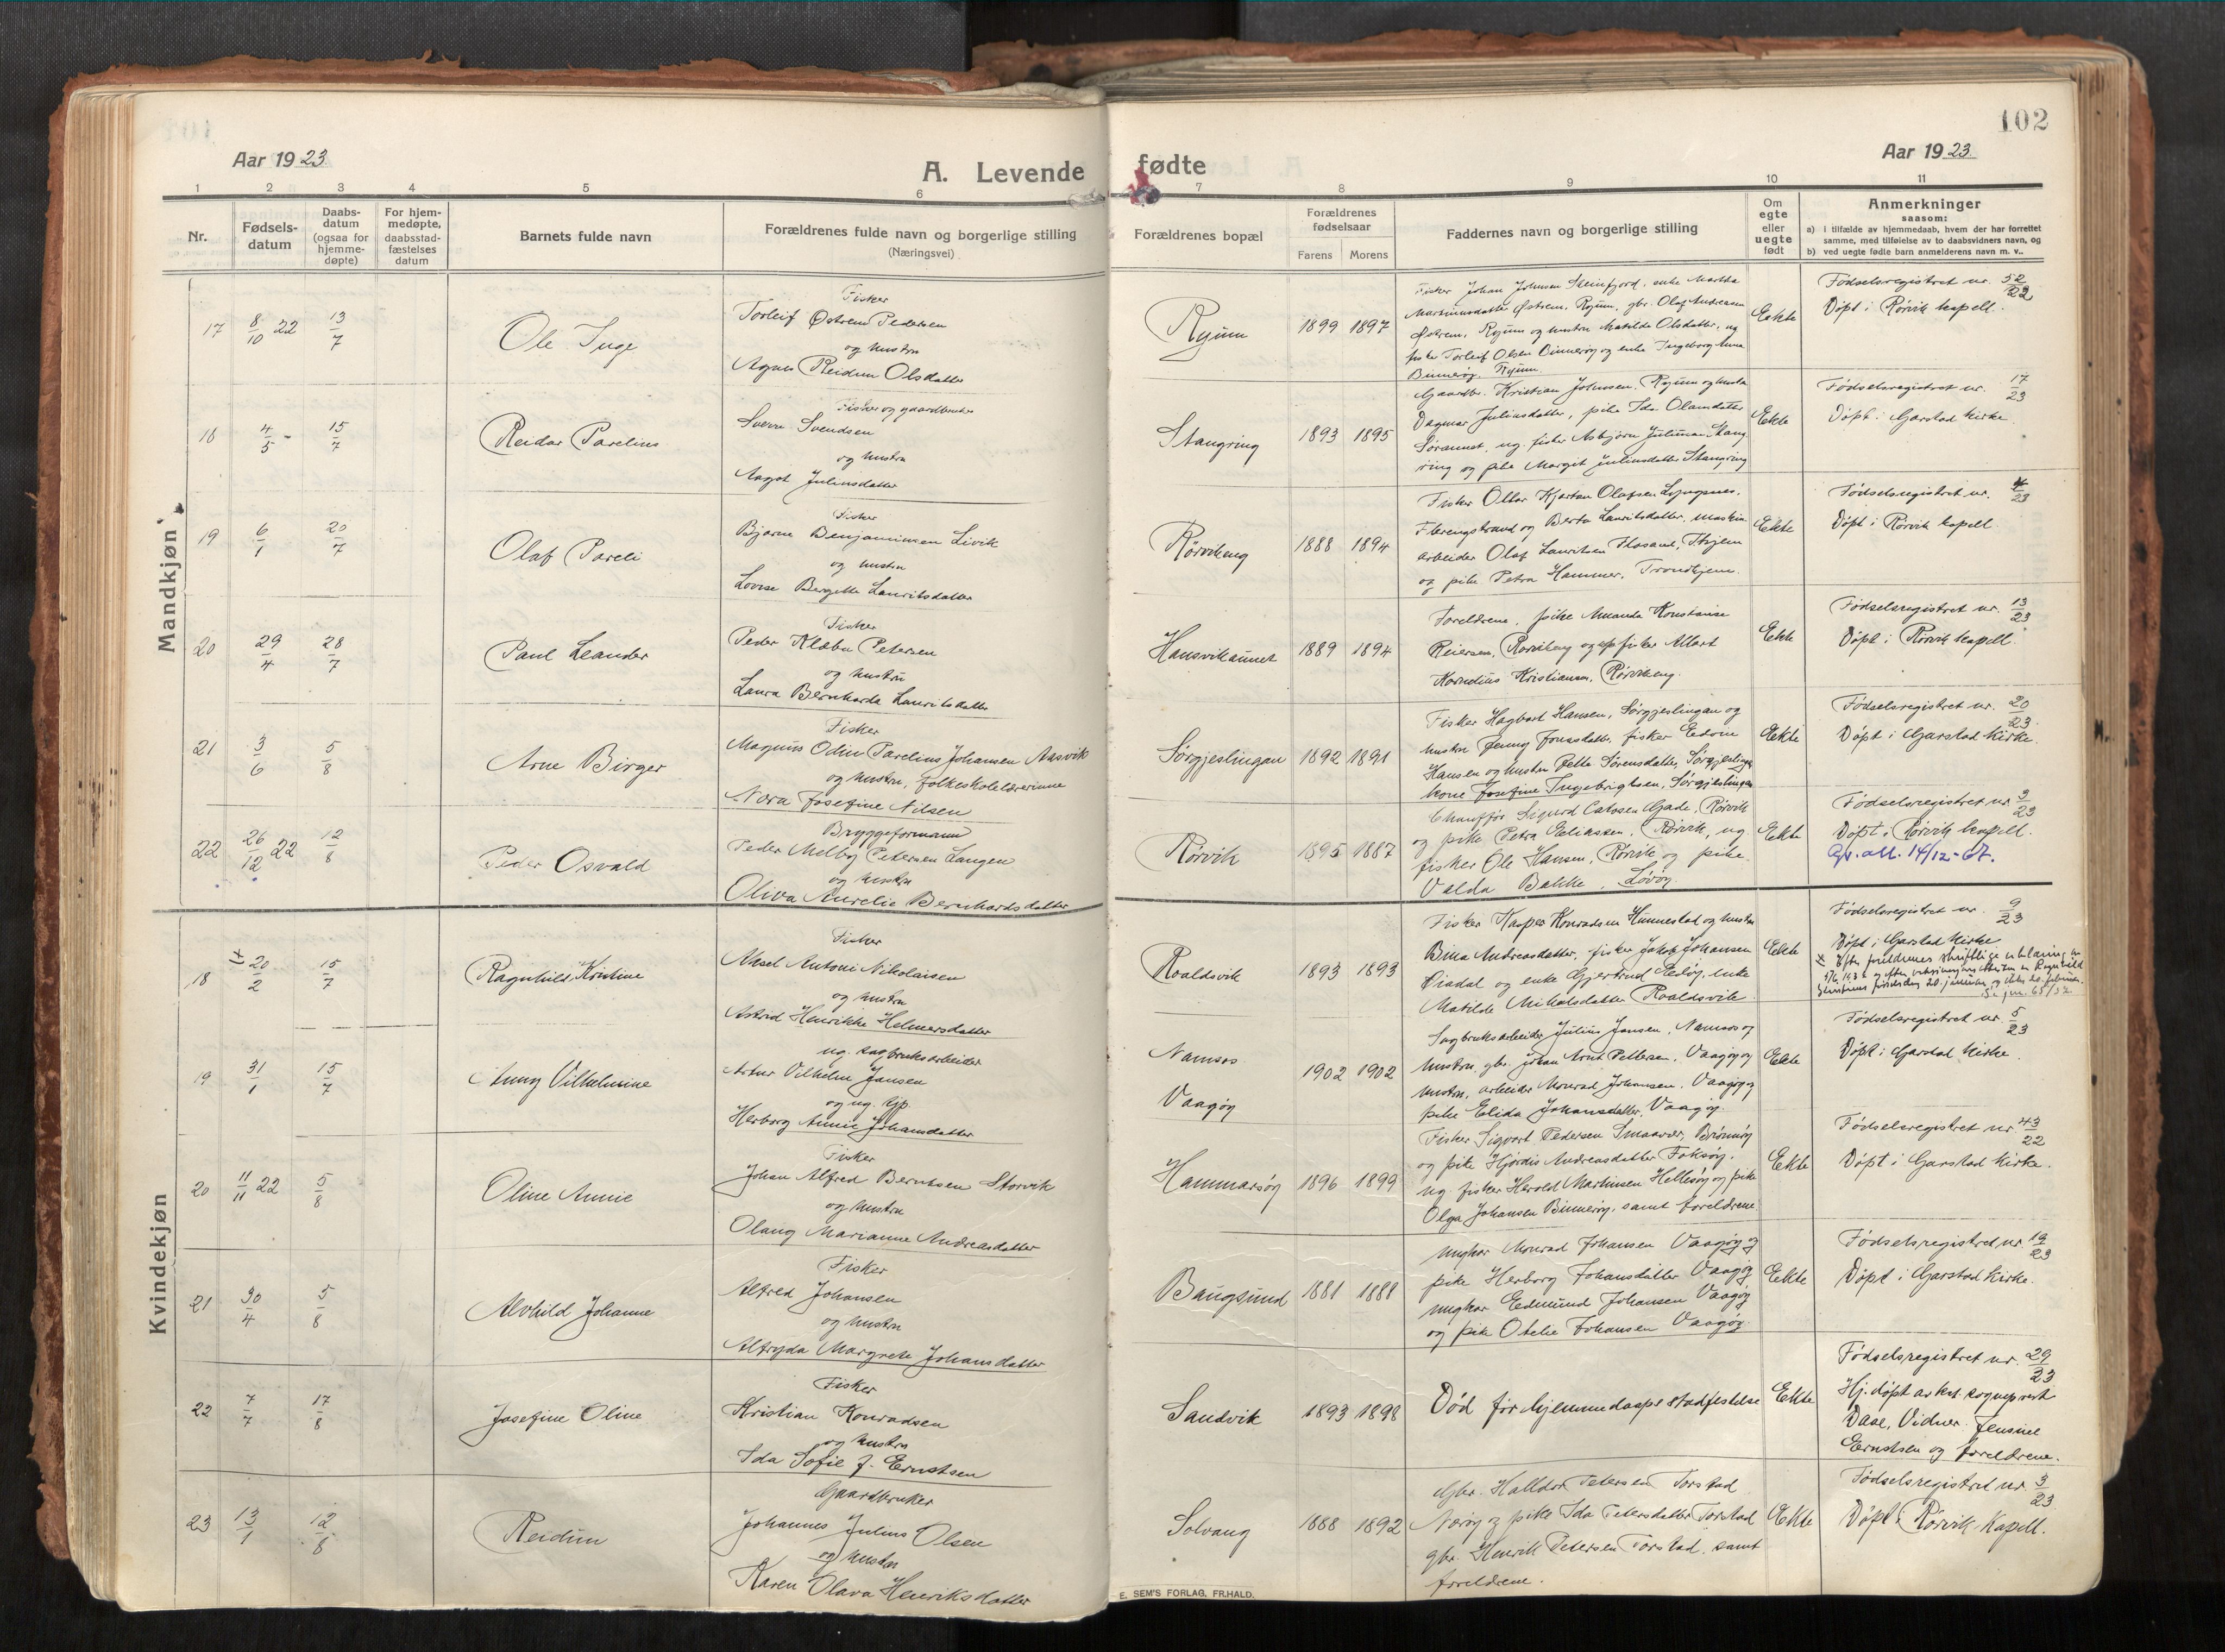 102
Aar 1923
A. Levende fødte
Aar 1923
1 2 3 4 5 6 7 8 9 10 11
Nr.
Fødsels-
datum
Daabs-
datum
(ogsaa for
hjemme-
døpte)
For hjem-
medøpte,
daabsstad-
fæstelses
datum
Barnets fulde navn
Forældrenes fulde navn og borgerlige stilling
(Næringsvei)
Forældrenes bopæl
Forældrenes
fødselsaar
Farens Morens
Faddernes navn og borgerlige stilling
Om
egte
eller
uegte
født
Anmerkninger
saasom:
a) i tilfælde av hjemmedaab, hvem der har forrettet
samme, med tilføielse av to daabsvidners navn, og
b) ved uegte fødte barn anmelderens navn m. v..
Mandkjøn
17 8/10 22 13/7
Ole Inge
Fisker
Torleif Østrem Pedersen
og hustru
Agnes Reidun Olsdatter
Ryum
1899 1897
Fisker Johan Johnsen Steinfjord, enke Martha
Martinusdatter Østrem, Ryum, gbr. Olaf Andreasen
Østrem, Ryum og hustru Matilde Olsdatter, ug
fisker Torleif Olsen Binnerøy og enke Ingeborg Anna
Binnerøy, Ryum.
Ekte
Fødselsregistret nr. 52/22
Døpt i Rørvik kapell.
18 4/5 - 15/7
Reidar Parelius
Fisker og gaardbruker
Sverre Svendsen
og hustru
Aagot Juliusdatter
Stangring
1893 1895
Gaardbr. Kristian Johnsen, Ryum og hustru
Dagmar Juliusdatter, pike Ida Olamdatter
Søraunet, ug. fisker Asbjørn Juliusen Stang
ring og pike Margit Juliusdatter Stangring
Ekte
Fødselsregistret nr. 17/23
Døpt i Garstad kirke.
19 6/1 20/7
Olaf Pareli
Fisker
Bjarne Benjaminsen Livik
og hustru
Lovise Bergette Lauritsdatter
Rørvikeng
1888 1894
Fisker Oltar Kjartan Olafsen Lyngsnes,
Flerengstrand og Berta Lauritsdatter, maskin
arbeider Olaf Lauritsen Hosand, Thjem
og pike Petra Hammer, Trondhjem.
Ekte
Fødselsregistret nr. 4/23
Døpt i Rørvik kapell
20 29/4 28/7
Paul Leander
Fisker
Peder Klæbu Petersen
og hustru
Laura Bernharda Lauritsdatter
Hansvikaunet
1889 1894
Foreldrene, pike Amanda Konstanse
Reiersen, Rørvikeng og fisker Albert
Kornelius Kristiansen, Rørvikeng.
Ekte
Fødselsregistret nr. 13/23
Døpt i Rørvik kapell
21 3/6 5/8
Arne Birger
Fisker
Magnus Odin Parelius Johansen Aasvik
og hustru, folkeskolelærerinne
Nora Josefine Nilsen
Sørgjeslingan
1892 1891
Fisker Hagbart Hansen, Sørgjeslingan og
hustru Jenny Jonasdatter, fisker Edvin
Hansen og hustru Jette Sørensdatter, Sørgjeslingan
kone Josefine Ingebrigtsen, Sørgjeslingan
Ekte
Fødselsregistret nr. 20/23.
Døpt i Garstad kirke.
22 26/12 22 12/8
Peder Osvald
Bryggeformann
Peder Melby Petersen Langen
og hustru
Oliva Aurelie Bernhardsdatter
Rørvik
1895 1887
Chauffør Sigurd Gade, Rørvik
og pike Petra Eriksen, Rørvik, ug
fisker Ole Hansen, Rørvik og pike
Valda Bakke, Løvøy.
Ekte
Fødselsregistret nr. 3/23
Døpt i Rørvik kapell.
Gv.att. 14/12-67.
Kvindekjøn
18 x 20/2 15/7
Ragnhild Kristine
Fisker
Aksel Antoni Nikolaisen
og hustru
Astrid Henrikke Helmersdatter
Roaldsvik
1893 1893
Fisker Kasper Konradsen Hunnestad og hustru
Bina Andreasdatter, fisker Jakob Johansen
Oiadal og enke Gjertrud, enke
Matilde Mikalsdatter Roaldsvik
Ekte
Fødselsregistret nr. 9/23
Døpt i Garstad kirke
x Efter foreldrenes skriftlige erklæring er
Ragnhild
Kristines fødselsdag 20. januar og ikke 20. februar.
Se jnr. 65/32
19 31/1 15/7
Anny Vilhelmine
ug. sagbruksarbeider
Artur Vilhelm Jansen
og ug. tjp.
Herborg Annie Johansdatter
Namsos
Vaagøy
1902 1902
Sagbruksarbeider Julius Jansen, Namsos og
hustru, gbr. Johan Arnt Pettersen, Vaagøy og
hustru, arbeider Konrad Johansen, Vaagøy og
pike Elida Johansdatter, Vaagøy.
Ekte
Fødselsregistret nr. 5/23
Døpt i Garstad kirke.
20 11/11 22 5/8
Oline Annie
Fisker
Johan Alfred Berntsen Storvik
og hustru
Olaug Marianne Andreasdatter
Hammarsøy
1896 1899
Fisker Sigvart Pedersen Smaavær, Brønnøy
og pike Hjørdis Andreasdatter Foksøy,
ug fisker Herold Martinsen Hellesøy og pike
Olga Johansen Binnerøy, samt foreldrene.
Ekte
Fødselsregistret nr 43/22
Døpt i Garstad kirke.
21 30/4 5/8
Alvhild Johanne
Fisker
Alfred Johansen
og hustru
Alfryda Margrete Johansdatter
Baugsund
1881 1888
Ungkar Konrad Johansen Vaagøy og
pike Herborg Johansdatter Vaagøy
ungkar Edmund Johansen Vaagøy
og pike Otelie Johansen Vaagøy.
Ekte
Fødselsregistret nr. 19/23
Døpt i Garstad kirke.
22 7/7 17/8
Josefine Oline
Fisker
Kristian Konradsen
og hustru
Ida Sofie J. Ernstsen
Sandvik
1893 1898
Død før hjemmedaaps stadfestelse
Ekte
Fødselsregistret nr. 29/23
Hj. døpt av kst. sogneprest
Daae, Vidner Jensine
Ernstsen og foreldrene.
23 13/1 12/8
Reidun
Gaardbruker
Johannes Julius Olsen
og hustru
Karen Olava Henriksdatter
Solvang
1888 1892
Gbr. Halldor Petersen Torstad
Nærøy og pike Ida Petersdatter Torstad
gbr. Henrik Petersen Torstad, samt
foreldrene.
Ekte
Fødselsregistret nr. 3/23
Døpt i Rørvik kapell.
E. SEM'S FORLAG, FR.HALD.